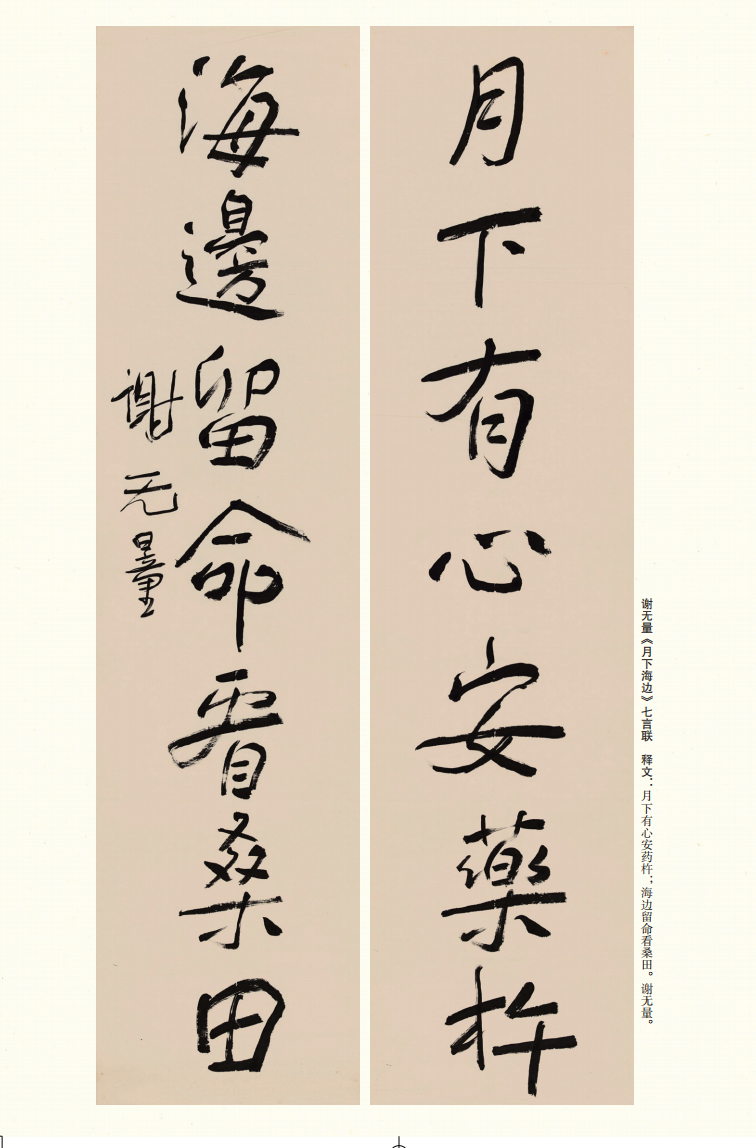 月下有心安藥杵
海邊留命看桑田
谢无量
谢无量《月下海边》七言联　释文：月下有心安药杵；海边留命看桑田。谢无量。